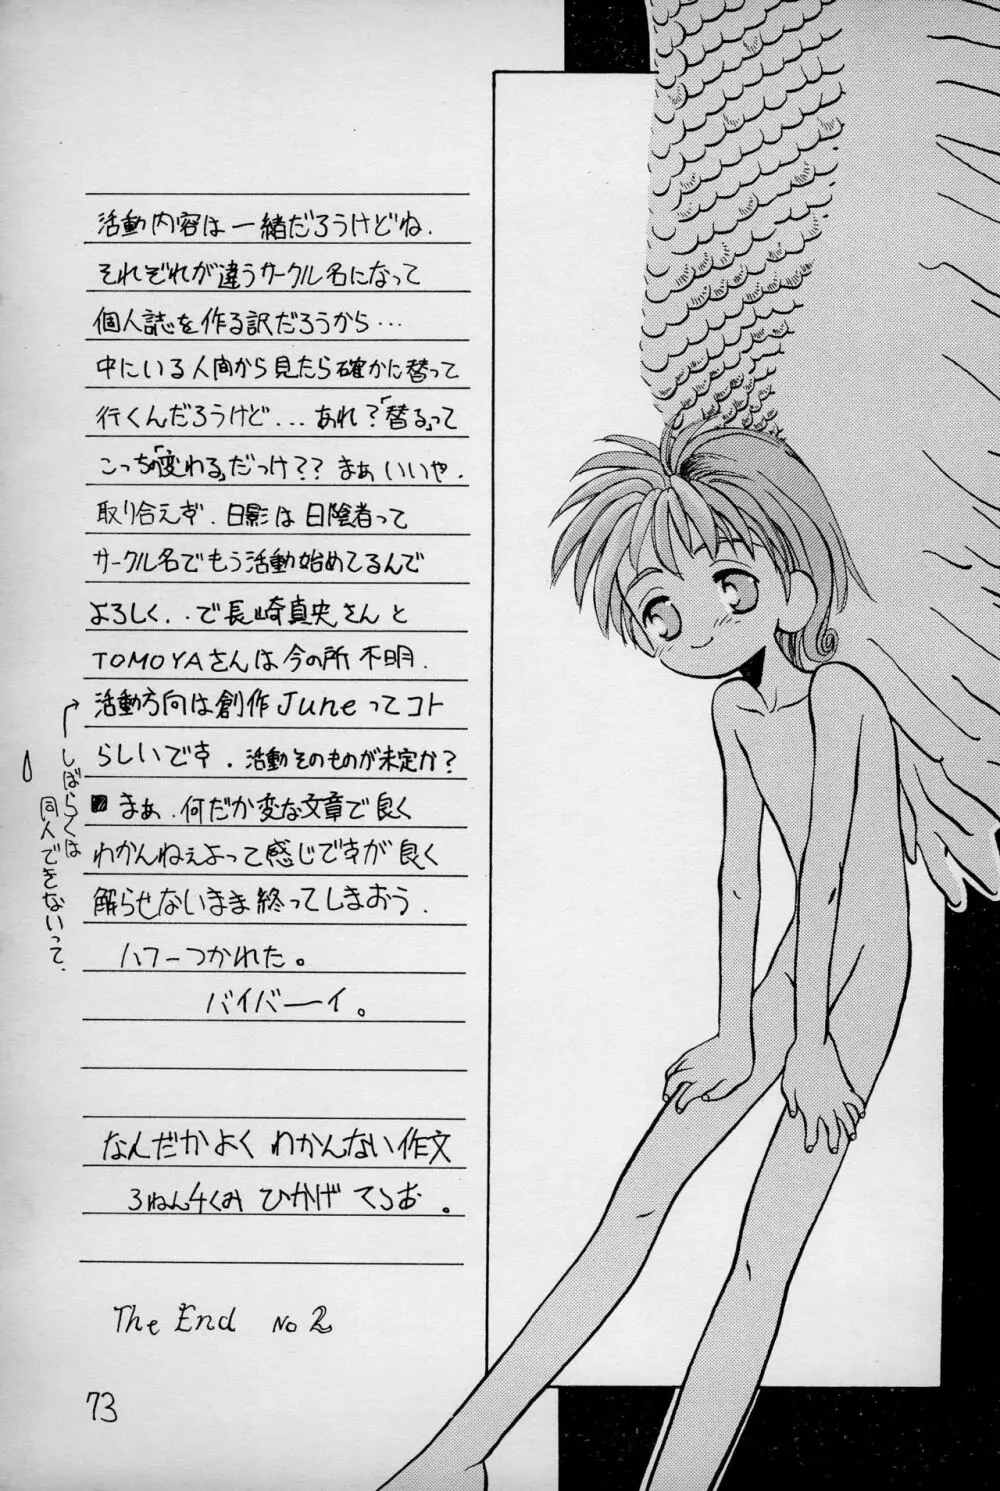 活動内容は一緒だろうけどね.
それぞれが違うサークル名になって
個人誌を作る訳だろうから...
中にいる人間から見たら確かに替って
行くんだろうけど...あれ?「替る」って
こっちの「変わる」だっけ??まぁいいや.
取り合えず.日影は日陰者って
サークル名でもう活動始めてるんで
よろしく..で長崎真央さんと
TOMOYAさんは今の所不明.
活動方向は創作Juneってコト
らしいです.活動そのものが未定か?
まぁ.何だか変な文章で良く
わかんねぇよって感じですが良く
解らせないまま終ってしまおう.
ハフーつかれた。
バイバーイ。
なんだかよくわかんない作文
3ねん4くみ ひかげ てらお。
→しばらくは
同人できないって.
The End No 2
73